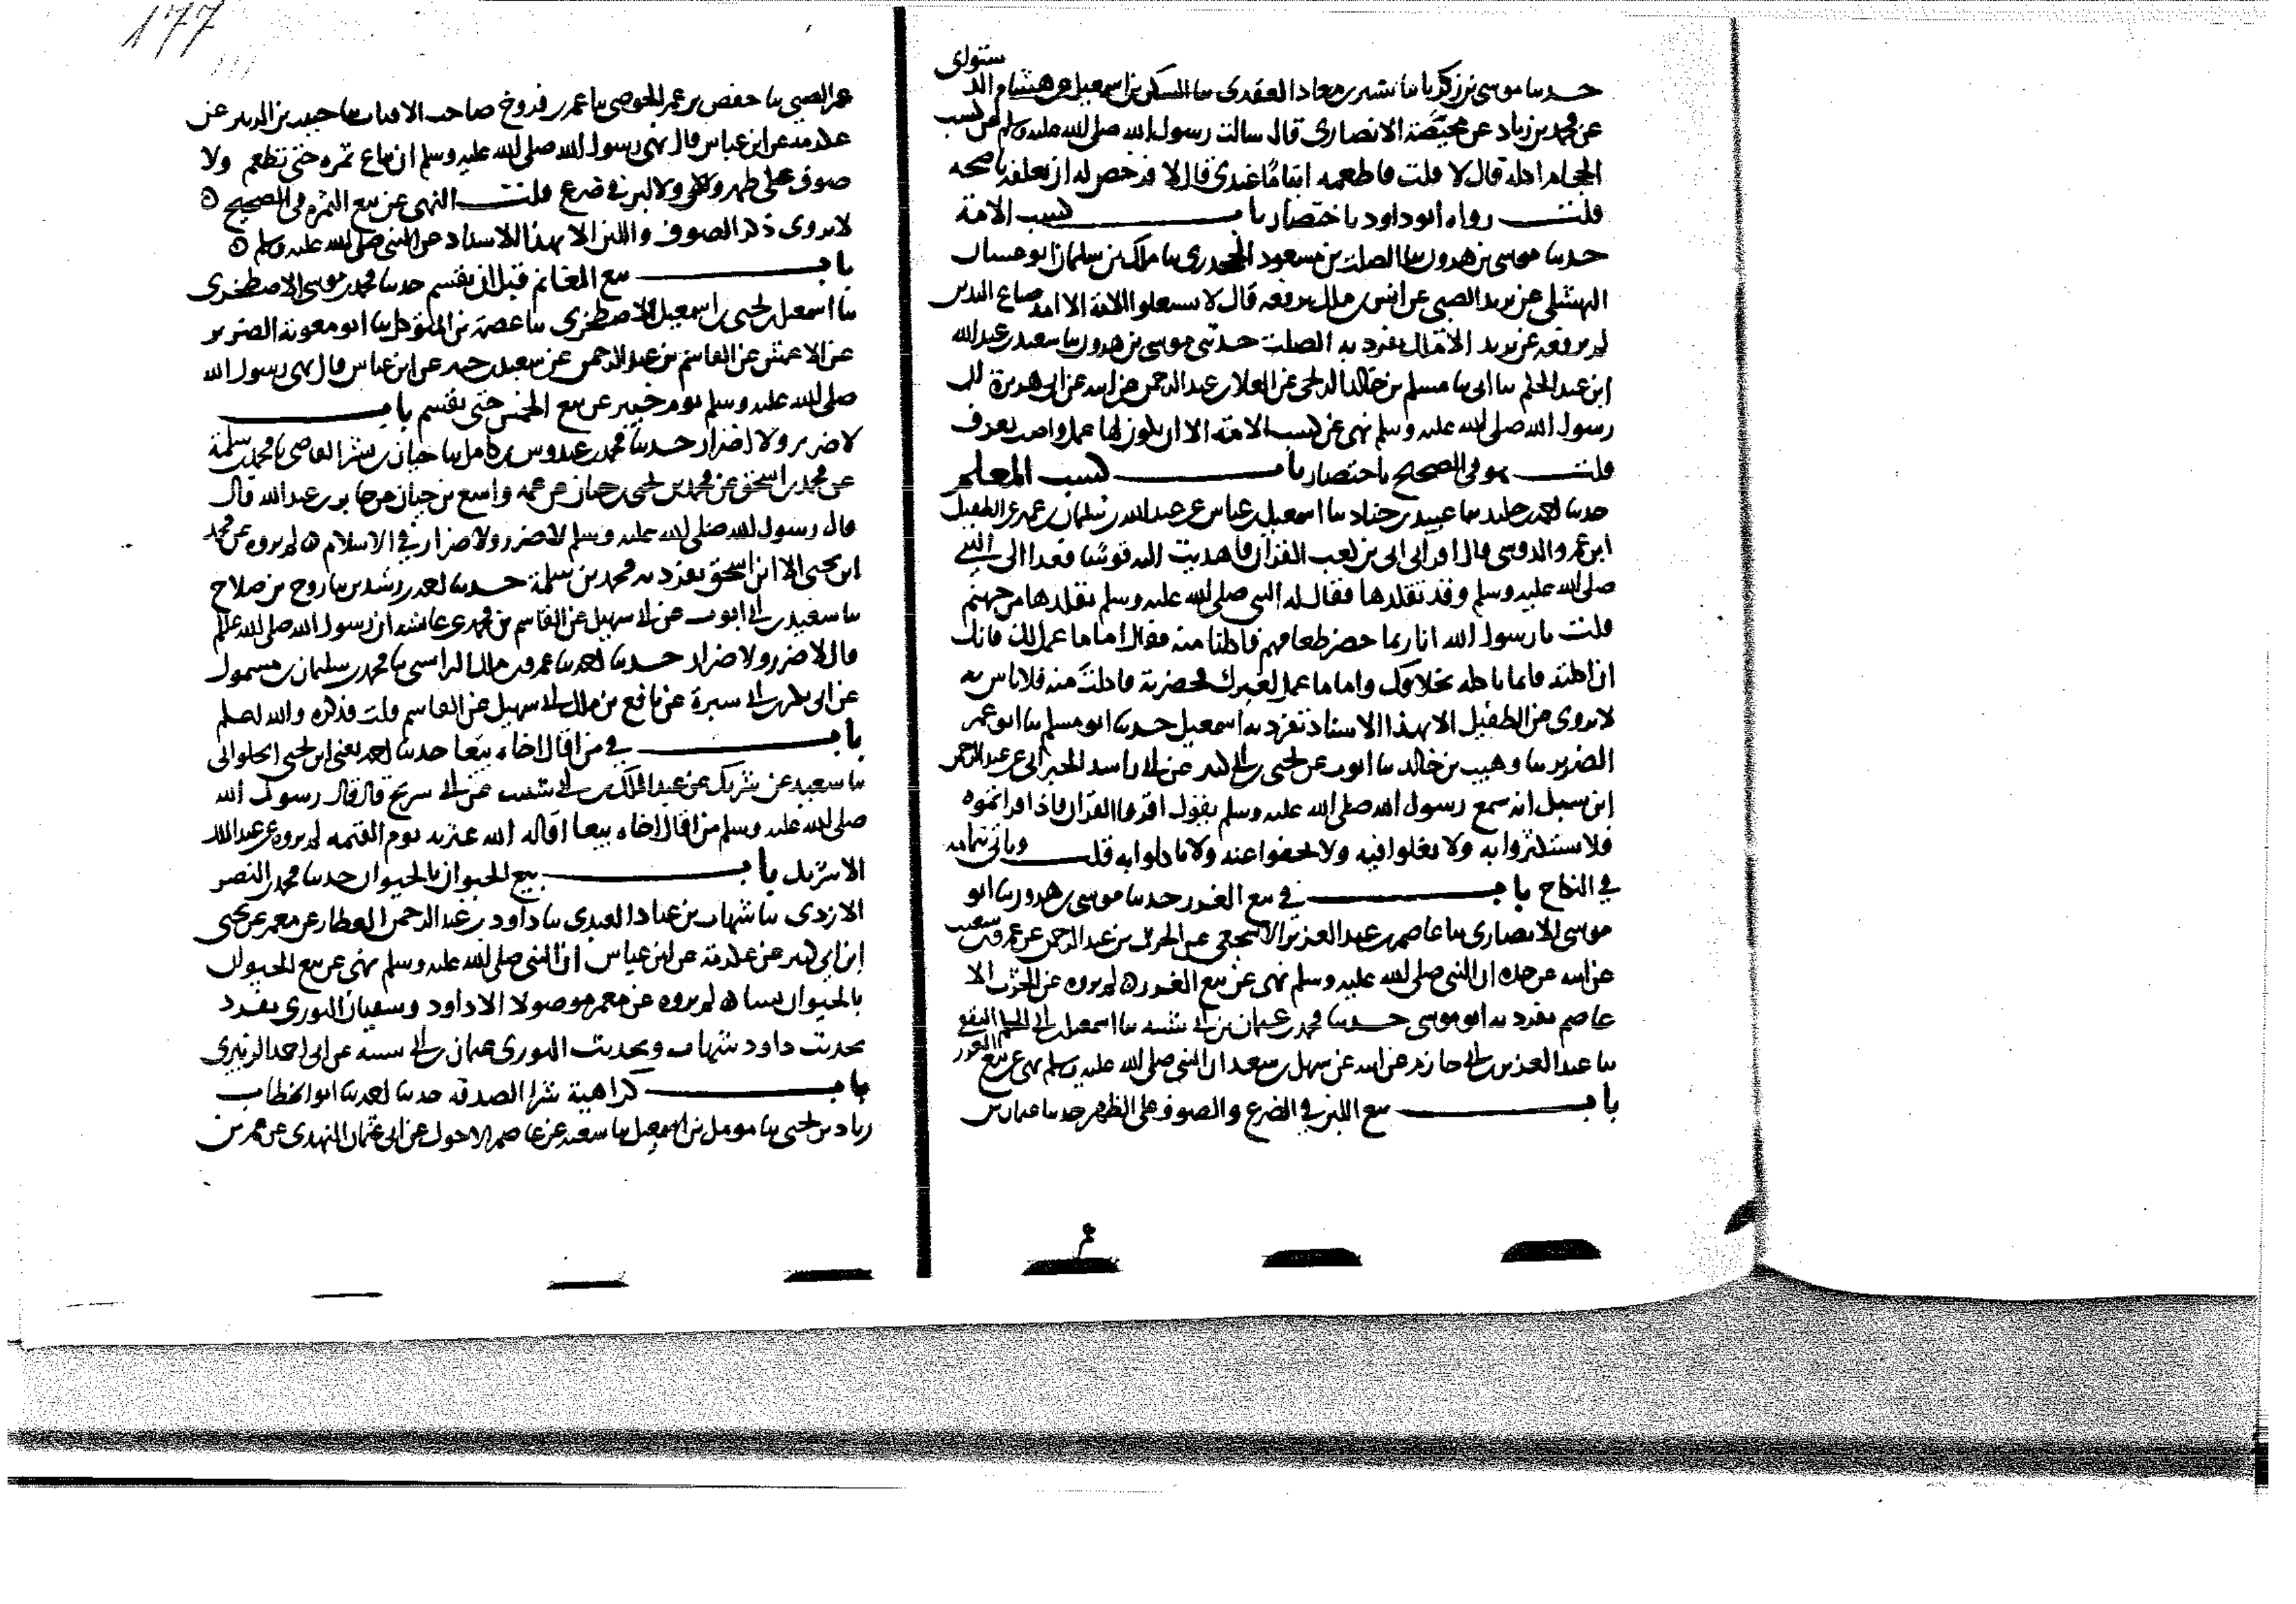 حدثنا موسى بن زكريا نا بشر بن معاذ العقدي نا السكن بن اسمعيل عن هشام الد
ستوائى
عن محمد بن زياد عن محيصة الانصارى قال سالت رسول الله صلى الله عليه وسلم عن كسب
الحجام احله قال لا قلت فاطعمه ايتاما عندى قال لا فرخص له ان يعلفه ناضحه
قلت رواه ابو داود باختصار باب كسب الامة
حدثنا موسى بن هرون نا الصلت بن مسعود الجحدرى نا مالك بن سليمان ابو غسان
النهشلى عن يزيد الضبى عن انس بن ملك يرفعه قال لا تستعلوا الامة الا امة صناع اليدين
لم يرفعه عن يزيد الا مالك تفرد به الصلت حدثنى موسى بن هرون نا سعيد بن عبد الله
ابن عبد الحكم نا ابى نا مسلم بن خالد الزنجى عن العلا بن عبد الرحمن عن ابيه عن ابى هريرة ان
رسول الله صلى الله عليه وسلم نهى عن كسب الامة الا ان يكون لها عمل واصب يعرف
قلت هو فى الصحيح باختصار باب كسب المعلم
حدثنا احمد بن خليد نا عبيد بن جناد نا اسمعيل بن عياش عن عبد الله بن سليمان بن عمير عن الطفيل
ابن عمرو الدوسى قال اقرانى ابى بن كعب القران فاهديت اليه قوسا فغدا الى النبى
صلى الله عليه وسلم وقد تقلدها فقال له النبى صلى الله عليه وسلم تقلدها من جهنم
قلت يا رسول الله انا ربما حضر طعامهم فاكلنا منه فقال اما ما عمل لك فانك
ان اكلته فانما تاكله بخلاقك واما ما عمل لغيرك فحضرته فاكلت منه فلا باس به
لا يروى عن الطفيل الا بهذا الاسناد تفرد به اسمعيل حدثنا ابو مسلم نا ابو عمر
الضرير نا وهيب بن خالد نا ايوب عن يحيى بن ابى كثير عن ابى راشد الحبرانى عن عبد الرحمن
ابن شبل انه سمع رسول الله صلى الله عليه وسلم يقول اقرءوا القران فاذا قراتموه
فلا تستكثروا به ولا تغلوا فيه ولا تجفوا عنه ولا تاكلوا به قلت وياتى تمامه
فى النكاح باب فى بيع الغرر حدثنا موسى بن هرون نا ابو
موسى الانصارى نا عاصم بن عبد العزيز الاشجعى عن الحرث بن عبد الرحمن عن عمرو بن شعيب
عن ابيه عن جده ان النبى صلى الله عليه وسلم نهى عن بيع الغرر لم يروه عن الحرث الا
عاصم تفرد به ابو موسى حدثنا محمد بن عثمان بن ابى شيبه نا اسمعيل بن ابى الحكم الثقفى
نا عبد العزيز بن ابى حازم عن ابيه عن سهل بن سعد ان النبى صلى الله عليه وسلم نهى عن بيع الغرر
باب بيع اللبن فى الضرع والصوف على الظهر حدثنا عثمان بن
١٧٧
عمر الضبى نا حفص بن عمر الحوضى نا عمر بن فروخ صاحب الاقتاب نا حبيب بن الزبير عن
عكرمة عن ابن عباس قال نهى رسول الله صلى الله عليه وسلم ان تباع ثمرة حتى تطعم ولا
صوف على ظهر ولا لبن فى ضرع قلت النهى عن بيع الثمرة فى الصحيح
لا يروى ذكر الصوف واللبن الا بهذا الاسناد عن النبى صلى الله عليه وسلم
باب بيع المغانم قبل ان تقسم حدثنا محمد بن موسى الاصطخرى
نا اسمعيل بن يحيى بن اسمعيل الاصطخرى نا عصمة بن المتوكل نا ابو معوية الضرير
عن الاعمش عن القاسم بن عبد الرحمن عن سعيد بن جبير عن ابن عباس قال نهى رسول الله
صلى الله عليه وسلم يوم خيبر عن بيع الخمس حتى يقسم باب
لا ضرر ولا اضرار حدثنا محمد بن عبدوس بن كامل نا حيان بن بشر القاضى نا محمد بن سلمة
عن محمد بن اسحق عن محمد بن يحيى بن حبان عن عمه واسع بن حبان عن جابر بن عبد الله قال
قال رسول الله صلى الله عليه وسلم لا ضرر ولا ضرار فى الاسلام لم يروه عن محمد
ابن يحيى الا ابن اسحق تفرد به محمد بن سلمة حدثنا احمد بن رشدين نا روح بن صلاح
نا سعيد بن ابى ايوب عن ابى سهيل عن القاسم بن محمد عن عائشة ان رسول الله صلى الله عليه وسلم
قال لا ضرر ولا ضرار حدثنا احمد نا عمرو بن ملك الراسبى نا محمد بن سليمان بن مسمول
عن ابى بكر بن ابى سبرة عن نافع بن ملك ابى سهيل عن القاسم قلت فذكره والله اعلم
باب فى من اقال اخاه بيعا حدثنا احمد يعنى ابن يحيى الحلوانى
نا سعيد عن شريك عن عبد الملك بن ابى شيب عن ابى شريح قال قال رسول الله
صلى الله عليه وسلم من اقال اخاه بيعا اقاله الله عثرته يوم القيمه لم يروه عن عبد الملك
الا شريك باب بيع الحيوان بالحيوان حدثنا محمد بن النضر
الازدى نا شهاب بن عباد العبدى نا داود بن عبد الرحمن العطار عن معمر عن يحيى
ابن ابى كثير عن عكرمة عن ابن عباس ان النبى صلى الله عليه وسلم نهى عن بيع الحيوان
بالحيوان نسا لم يروه عن معمر موصولا الا داود وسفيان الثورى تفرد
بحديث داود شهاب وبحديث الثورى عثمان بن ابى شيبه عن ابى احمد الزبيرى
باب كراهية شرا الصدقه حدثنا احمد نا ابو الخطاب
زياد بن يحيى نا مومل بن اسمعيل نا شعبه عن عاصم الاحول عن ابى عثمان النهدى عن عمر بن